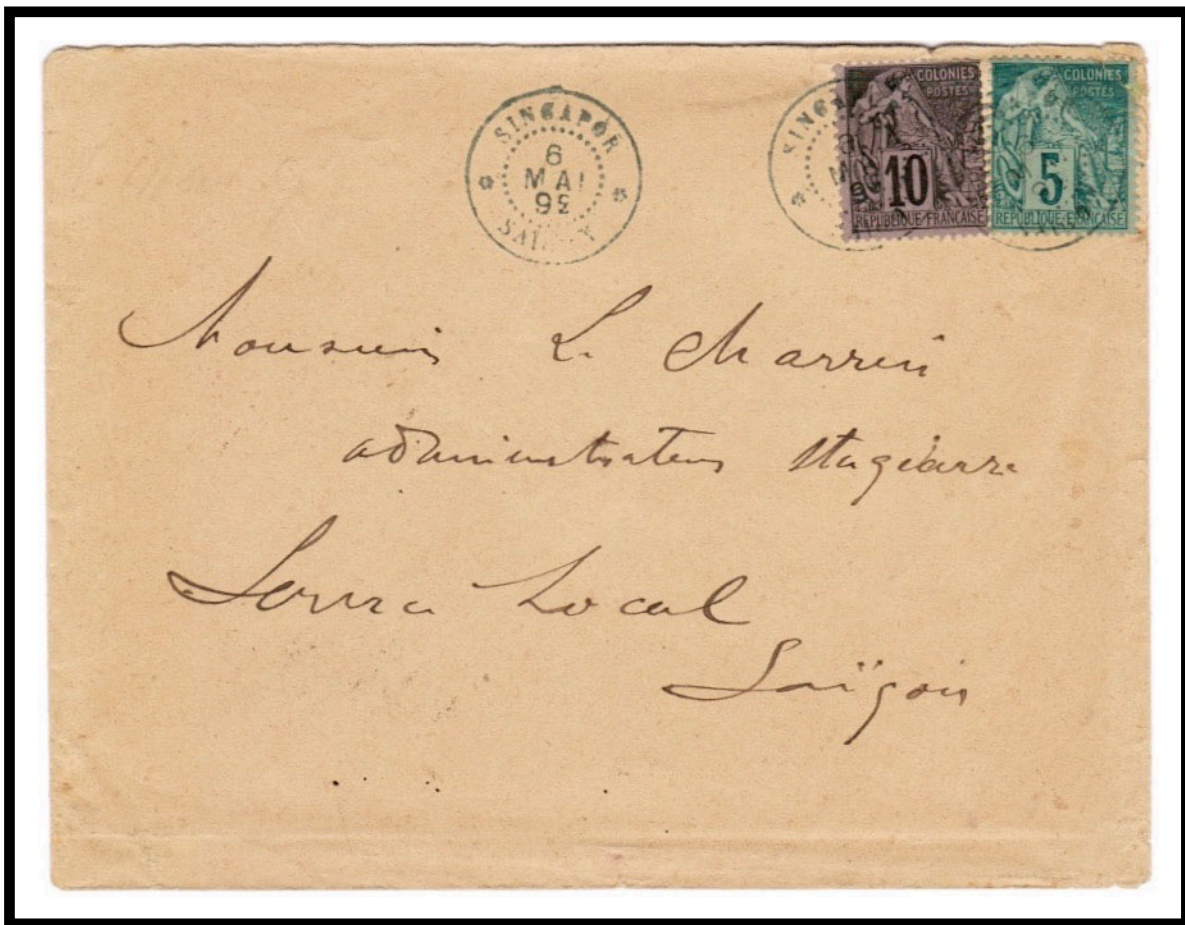 SINGAPOR
6
MAI
92
SAIG
SINGA
COLONIES
POSTES
10
RÉPUBLIQUE FRANÇAISE
COLONIES
POSTES
5
RÉPUBLIQUE FRANÇAISE
Monsieur L. Charrin
administrateur stagiaire
Service Local
Saïgon